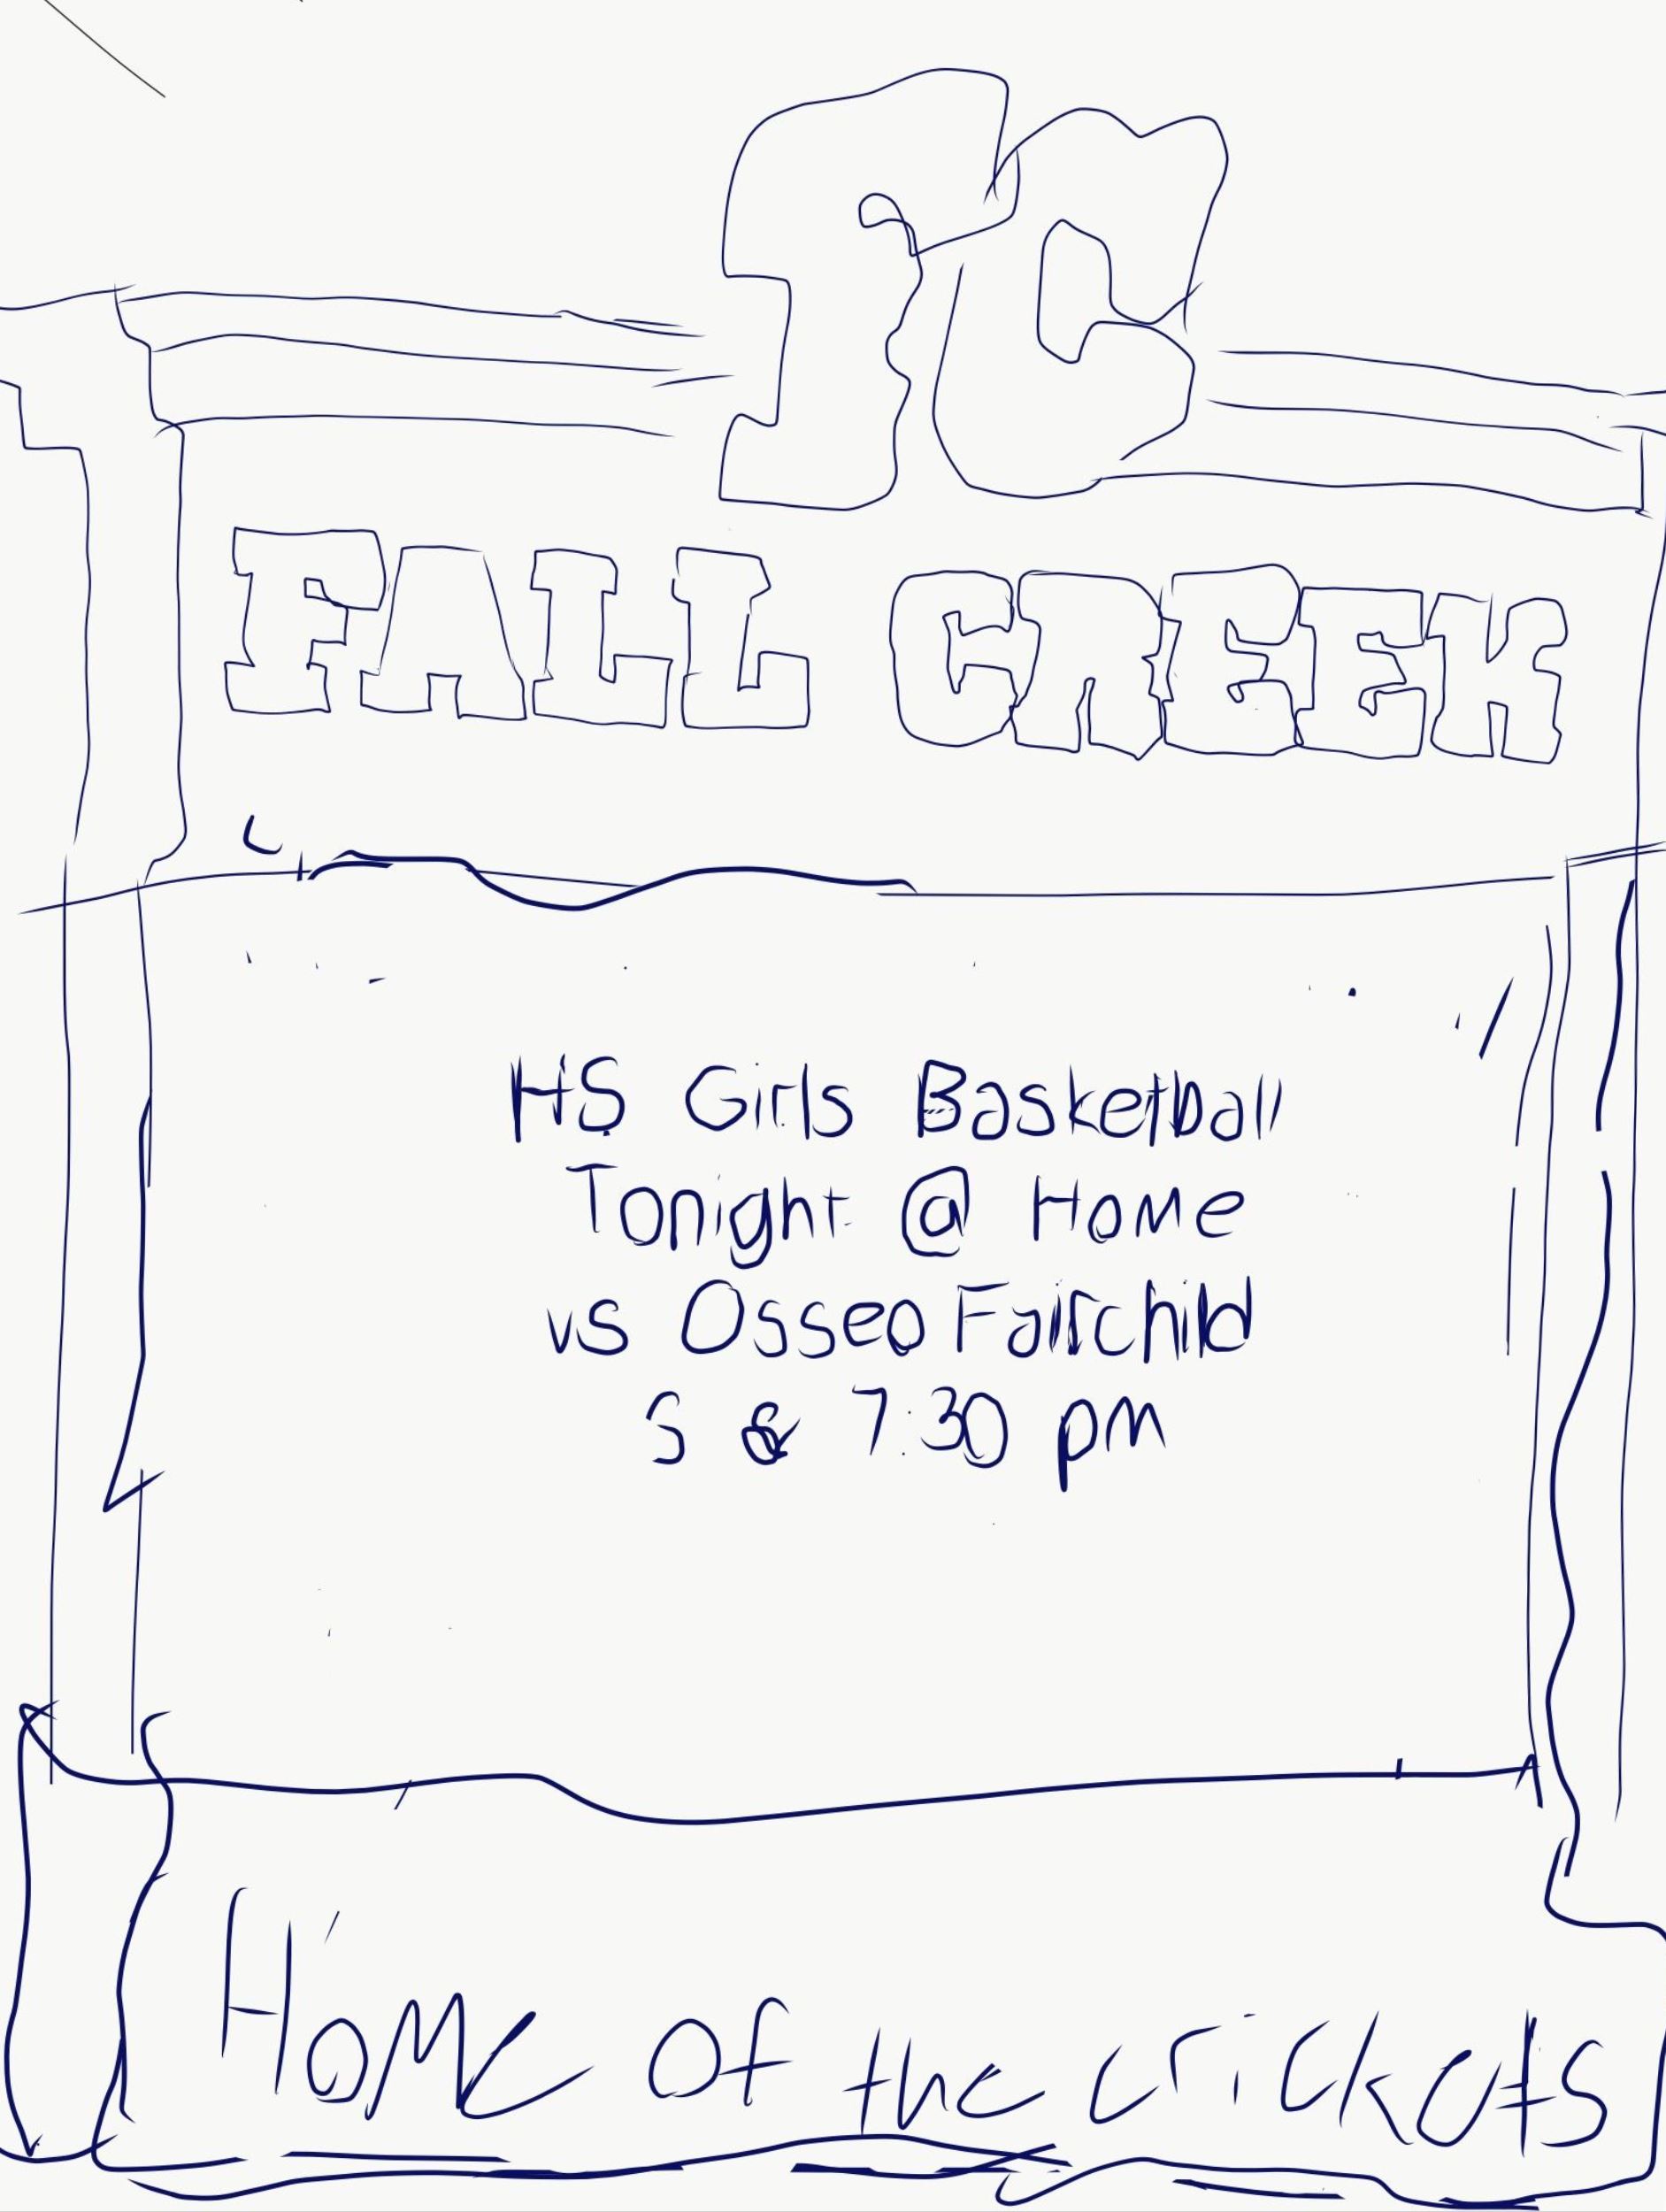 fC
FALL CREEK
HS Girls Basketball
Tonight @ Home
vs Osseo Fairchild
5 & 7:30 pm
Home of the crickets